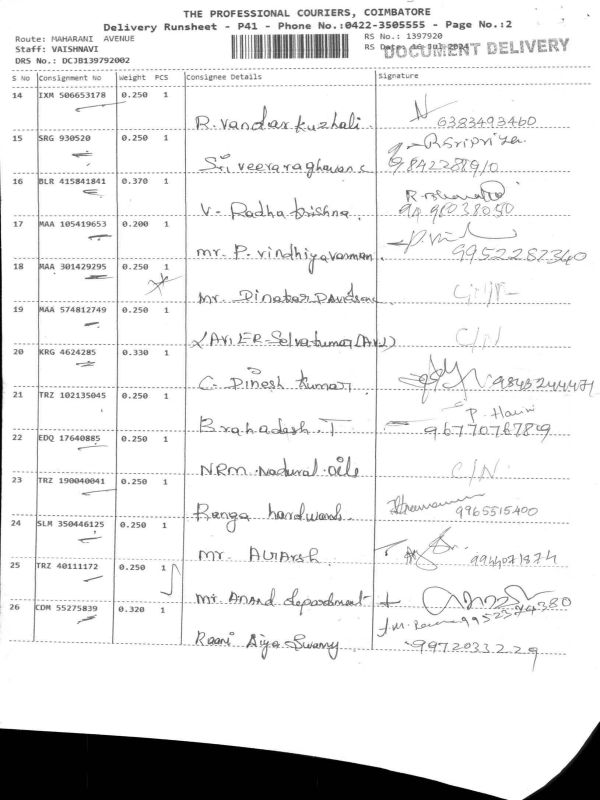 THE PROFESSIONAL COURIERS, COIMBATORE
Delivery Runsheet - P41 - Phone No.:0422-3505555 - Page No.:2
Route: MAHARANI AVENUE
RS No.: 1397920
Staff: VAISHNAVI
RS Date: 16 Jul 2024
DOCUMENT DELIVERY
DRS No.: DCJB139792002
S No Consignment No Weight PCS Consignee Details Signature
14 IXM 506653178 0.250 1
R. Vandar kuzhali. 6383493460
15 SRG 930520 0.250 1
Sri veeraraghavan.s
16 BLR 415841841 0.370 1
V- Radha krishna.
17 MAA 105419653 0.200 1
mr. P. vindhiyavarman. 9952282340
18 MAA 301429295 0.250 1
mr.
19 MAA 574812749 0.250 1
C/N
20 KRG 4624285 0.330 1
C- Dinesh kumar 9843244471
21 TRZ 102135045 0.250 1
P. Hari
Brahadesh.T
22 EDQ 17640885 0.250 1
NRM. Nadural oils C/N.
23 TRZ 190040041 0.250 1
Ranga hardware. 9965515400
24 SLM 350446125 0.250 1
mr.
25 TRZ 40111172 0.250 1
mr. Anand department
26 CDM 55275839 0.320 1
Raani Aiya Swamy 9972033229